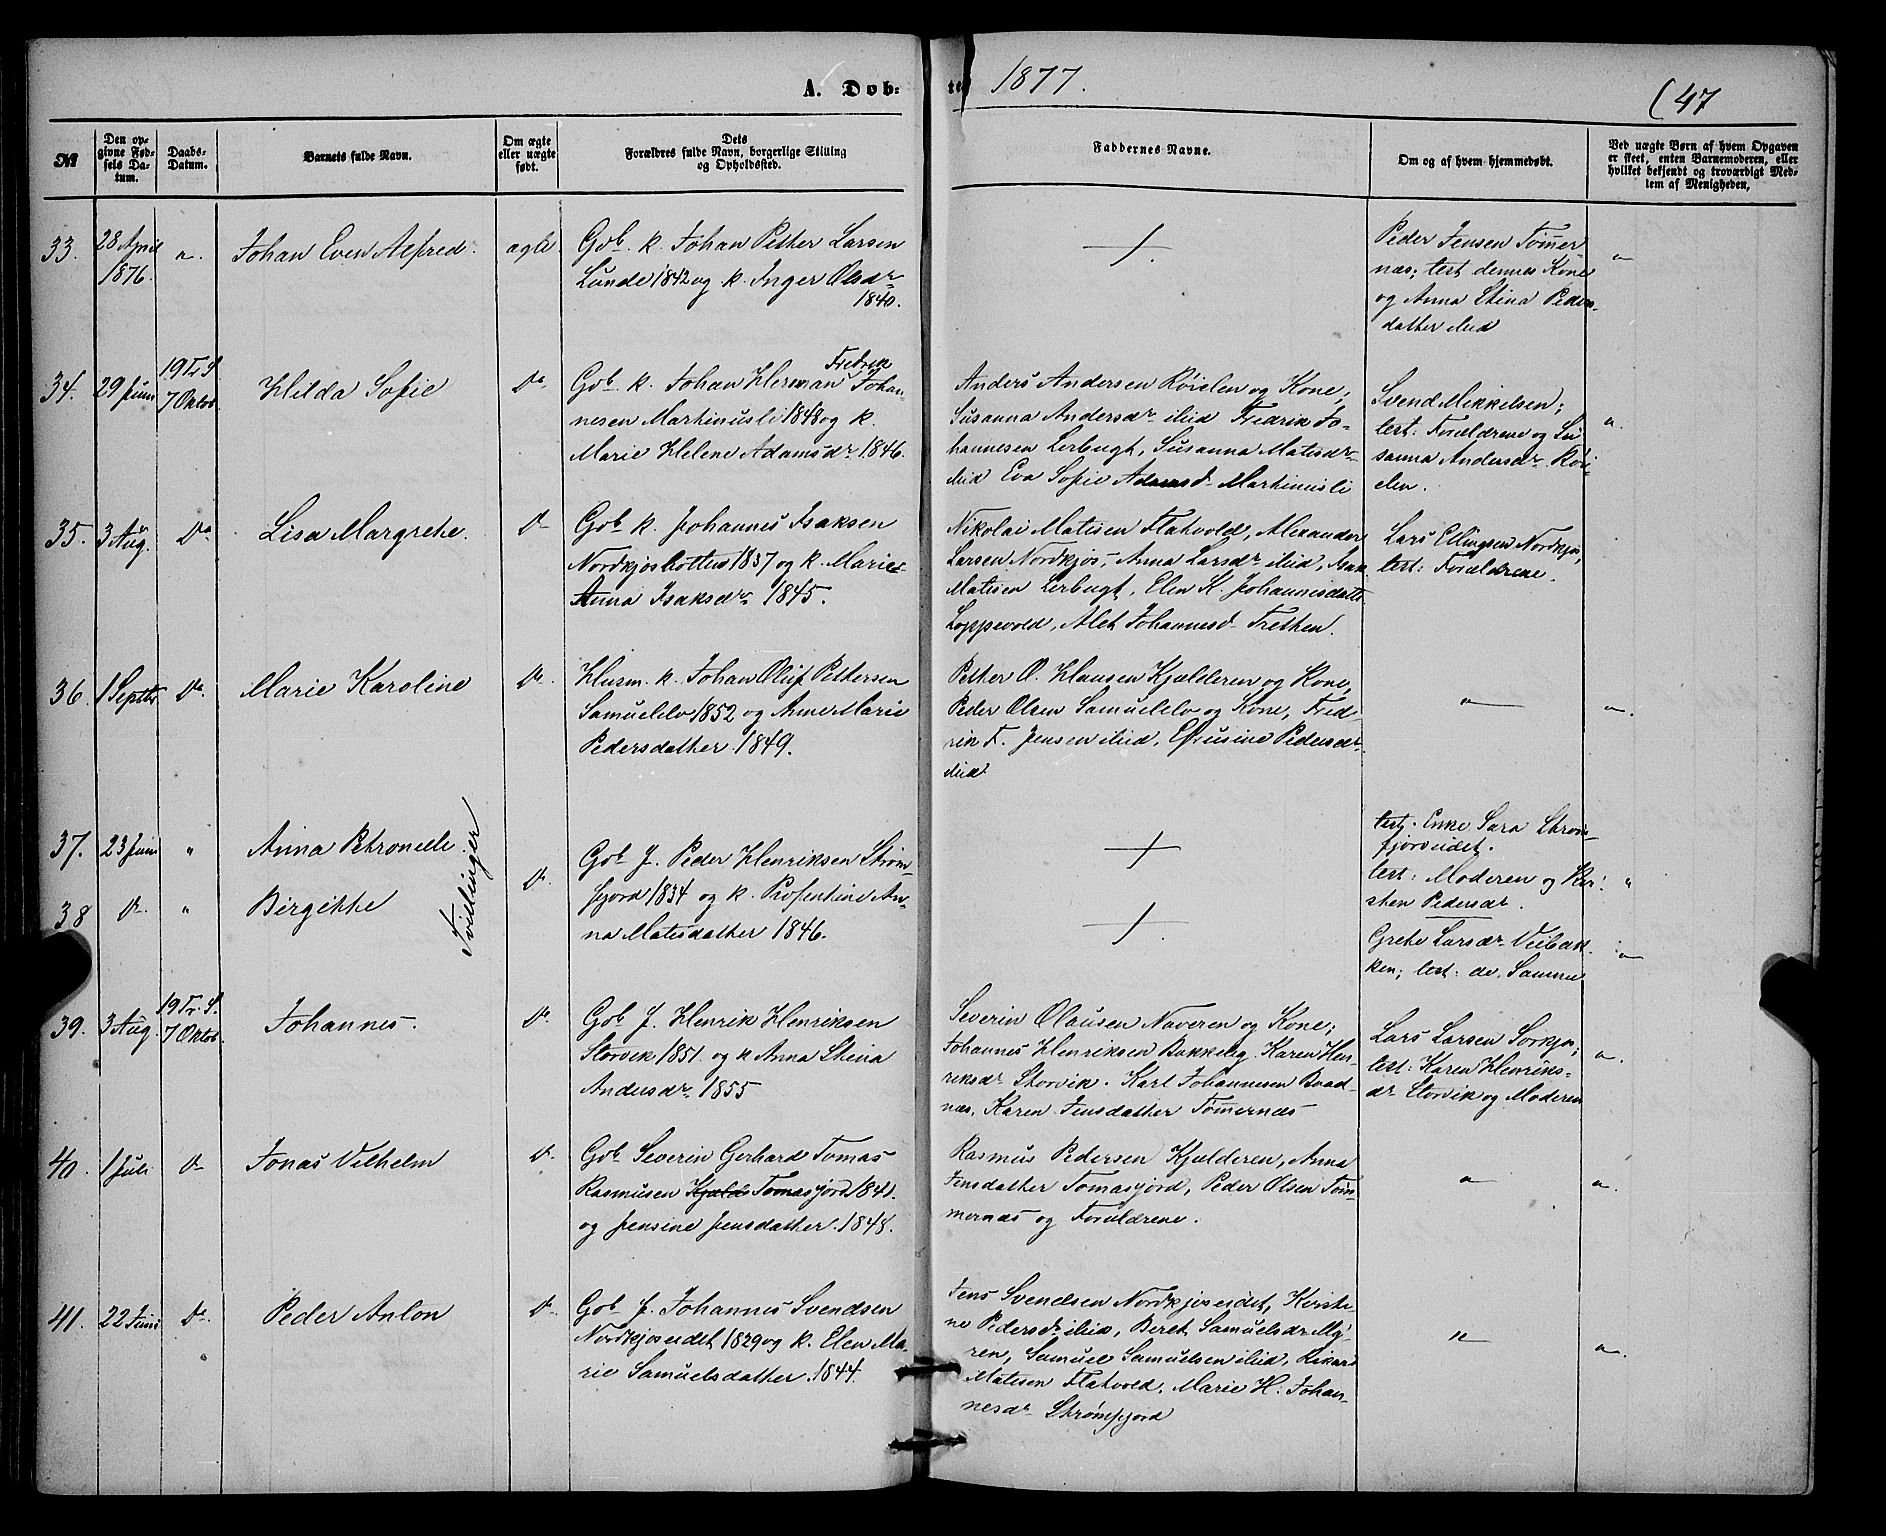 A. Døb-
tes 1877.
(47
№
Den op-
givne Fød-
sels Da-
tum.
Daabs-
Datum.
Barnets fulde Navn.
Om ægte
eller uægte
født.
Dets
Forældres fulde Navn, borgerlige Stilling
og Opholdssted.
Faddernes Navne.
Om og af hvem hjemmedøbt.
Ved uægte Børn af hvem Opgaven
er skeet, enten Barnemoderen, eller
hvilket bekjendt og troværdigt Med-
lem af Menigheden.
33.
28 April
1876.
"
Johan Even Alfred
ægte
Gbr. k. Johan Petter Larsen
Lunde 1842 og k. Inger Olsdr
1840.
Peder Jensen Tømer-
næs; test dennes Kone
og Anna Stina Peders-
datter ibid
"
34.
29 Juni
19 Tr. S.
7 Oktob.
Hilda Sofie
Do
Gbr. k. Johan Herman Fredrik Johan-
nesen Martinusli 1848 og k.
Marie Helene Adamsdr 1846.
Anders Andersen Röielen og Kone,
Susanna Andersdr ibid Fredrik Jo-
hannesen Lerbugt, Susanna Matisdr
ibid Eva Sofie Adamsd. Martinusli
Svend Mikkelsen;
test: Forældrene og Su
sanna Andersdr Röi-
elen.
"
35.
3 Aug.
Do
Lisa Margrethe.
Do
Gbr k. Johannes Isaksen
Nordkjosbotten 1837 og k. Marie
Anna Isaksdr 1845.
Nikolai Matisen Flatvold, Alexander
Larsen Nordkjos, Anna Larsdr ibid, Isak
Matisen Lerbugt, Elen K. Johannesdatter
Loppevold, Alet Johannesd. Tretten.
Lars Ellingsen Nordkjos,
test: Forældrene.
36.
1 Septbr
Do
Marie Karoline
Do
Husm. k. Johan Oluf Pettersen
Samuelelv 1852 og Anne Marie
Pedersdatter 1849.
Petter O. Hansen Kjelderen og Kone,
Peder Olsen Samuelelv og Kone, Fred-
rik F. Jensen ibid, Efrusine Pedersdr
ibid
"
"
37.
23 Juni
"
Anna Petronelle.
Tvillinger
test: Enke Sara Strøm-
fjordeidet.
38
Do
"
Birgitte
Do
Gbr J. Peder Henriksen Strøm-
fjord 1834 og k. Profentine An-
na Matisdatter 1846.
test: Moderen og Kir-
sten Pedersdr.
"
Grete Larsdr Veibak-
ken; test: de Samme
"
39.
3 Aug.
19 Tr. S.
7 Oktob.
Johannes.
Do
Gbr J. Henrik Henriksen
Storvik 1851. og k Anna Stina
Andersdr 1855
Severin Olausen Naveren og Kone;
Johannes Henriksen Bakkeby. Karen Hen-
riksdr Storvik. Karl Johannesen Baad-
næs, Karen Jensdatter Tømernæs
Lars Larsen Sorkjos;
test: Karen Henriks-
dr Storvik og Moderen
"
40.
1 Juli
Do
Jonas Vilhelm
Do
Gbr Severin Gerhard Tomas
Rasmusen Kjeld Tomasjord 1841.
og Jensine Jensdatter. 1848.
Rasmus Pedersen Kjelderen, Anna
Jensdatter Tomasjord, Peder Olsen Tøm-
mernæs og Forældrene.
"
"
41.
22 Juni
Do
Peder Anton
Do
Gbr J. Johannes Svendsen
Nordkjoseidet 1829 og k. Elen Ma-
rie Samuelsdatter. 1844.
Jens Svendsen Nordkjoseidet, Kirsti-
ne Pedersdr ibid, Beret Samuelsdr My-
ren, Samuel Samuelsen ibid, Rikard
Matisen Flatvold, Marie H. Johan-
nesdr Strømfjord
"
"